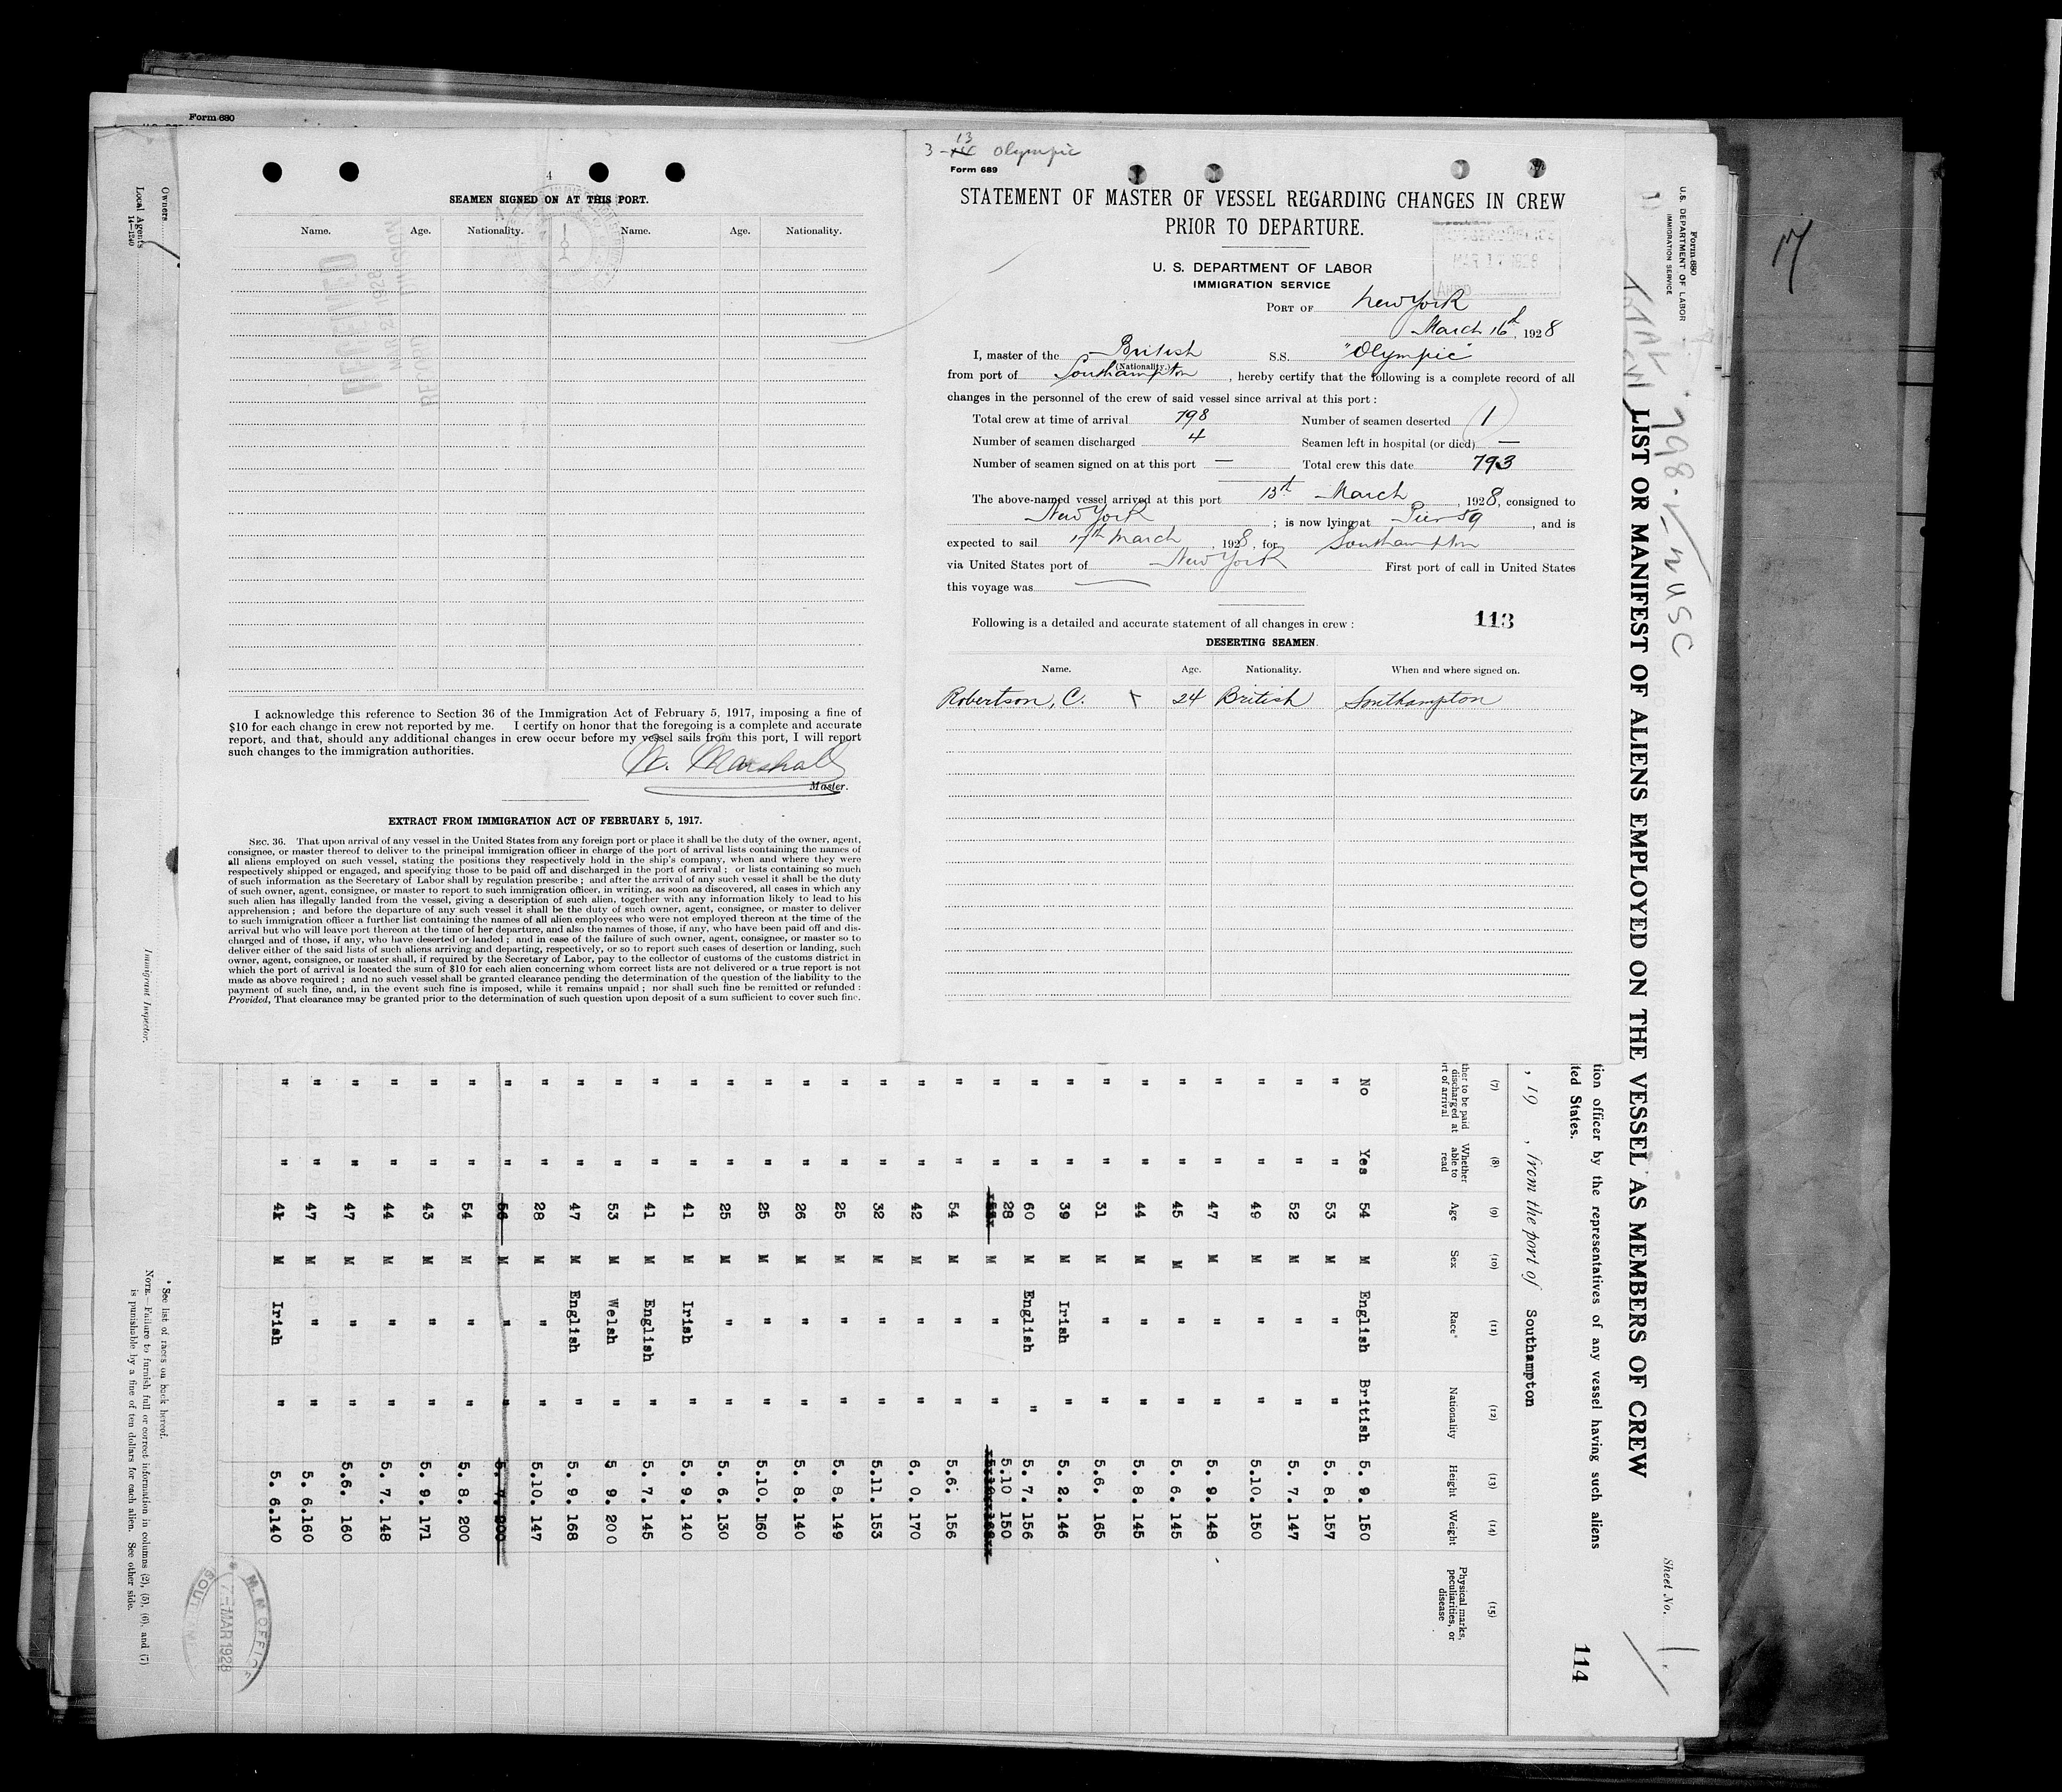 Form 680
4
SEAMEN SIGNED ON AT THIS PORT.
Name. Age. Nationality. Name. Age. Nationality.
RECEIVED
MAR 23 1928
RECORD DIVISION
I acknowledge this reference to Section 36 of the Immigration Act of February 5, 1917, imposing a fine of
$10 for each change in crew not reported by me. I certify on honor that the foregoing is a complete and accurate
report, and that, should any additional changes in crew occur before my vessel sails from this port, I will report
such changes to the immigration authorities.
W. Marshall
Master.
EXTRACT FROM IMMIGRATION ACT OF FEBRUARY 5, 1917.
SEC. 36. That upon arrival of any vessel in the United States from any foreign port or place it shall be the duty of the owner, agent,
consignee, or master thereof to deliver to the principal immigration officer in charge of the port of arrival lists containing the names of
all aliens employed on such vessel, stating the positions they respectively hold in the ship's company, when and where they were
respectively shipped or engaged, and specifying those to be paid off and discharged in the port of arrival; or lists containing so much
of such information as the Secretary of Labor shall by regulation prescribe; and after the arrival of any such vessel it shall be the duty
of such owner, agent, consignee, or master to report to such immigration officer, in writing, as soon as discovered, all cases in which any
such alien has illegally landed from the vessel, giving a description of such alien, together with any information likely to lead to his
apprehension; and before the departure of any such vessel it shall be the duty of such owner, agent, consignee, or master to deliver
to such immigration officer a further list containing the names of all alien employees who were not employed thereon at the time of the
arrival but who will leave port thereon at the time of her departure, and also the names of those, if any, who have been paid off and dis-
charged and of those, if any, who have deserted or landed; and in case of the failure of such owner, agent, consignee, or master so to
deliver either of the said lists of such aliens arriving and departing, respectively, or so to report such cases of desertion or landing, such
owner, agent, consignee, or master shall, if required by the Secretary of Labor, pay to the collector of customs of the customs district in
which the port of arrival is located the sum of $10 for each alien concerning whom correct lists are not delivered or a true report is not
made as above required; and no such vessel shall be granted clearance pending the determination of the question of the liability to the
payment of such fine, and, in the event such fine is imposed, while it remains unpaid; nor shall such fine be remitted or refunded:
Provided, That clearance may be granted prior to the determination of such question upon deposit of a sum sufficient to cover such fine.
3-13 Olympic
Form 689
STATEMENT OF MASTER OF VESSEL REGARDING CHANGES IN CREW
PRIOR TO DEPARTURE.
U. S. DEPARTMENT OF LABOR
IMMIGRATION SERVICE
PORT OF New York
March 16th, 1928
I, master of the British S.S. "Olympic"
(Nationality.)
from port of Southampton, hereby certify that the following is a complete record of all
changes in the personnel of the crew of said vessel since arrival at this port:
Total crew at time of arrival 798 Number of seamen deserted 1
Number of seamen discharged 4 Seamen left in hospital (or died) —
Number of seamen signed on at this port — Total crew this date 793
The above-named vessel arrived at this port 13th March, 1928, consigned to
New York; is now lying at Pier 59, and is
expected to sail 17th March, 1928, for Southampton
via United States port of New York First port of call in United States
this voyage was —
Following is a detailed and accurate statement of all changes in crew: 113
DESERTING SEAMEN.
Name. Age. Nationality. When and where signed on.
Robertson, C. x 24 British Southampton
Form 680
U.S. DEPARTMENT OF LABOR
IMMIGRATION SERVICE
798
USC
LIST OR MANIFEST OF ALIENS EMPLOYED ON THE VESSEL AS MEMBERS OF CREW
Sheet No. 1.
114
tion officer by the representatives of any vessel having such aliens
ted States.
, 19 , from the port of Southampton
(7) (8) (9) (10) (11) (12) (13) (14) (15)
ther to be paid discharged at rt of arrival Whether able to read Age Sex Race* Nationality Height Weight Physical marks, peculiarities, or disease
No Yes 54 M English British 5. 9. 150
" " 53 M " " 5. 8. 157
" " 52 M " " 5. 7. 147
" " 49 M " " 5.10. 150
" " 47 M " " 5. 9. 148
" " 45 M " " 5. 6. 145
" " 44 M " " 5. 8. 145
" " 31 M " " 5.6. 165
" " 39 M Irish " 5. 2. 146
" " 60 M English " 5. 7. 156
" " 28 M " " 5.10 150
" " 54 M " " 5.6. 156
" " 42 M " " 6. 0. 170
" " 32 M " " 5.11. 153
" " 25 M " " 5. 8. 149
" " 26 M " " 5. 8. 140
" " 25 M " " 5.10. 160
" " 25 M " " 5. 6. 130
" " 41 M Irish " 5. 9. 140
" " 41 M English " 5. 7. 145
" " 53 M Welsh " 5 9. 200
" " 47 M English " 5. 9. 168
" " 28 M " " 5.10. 147
" " 56 M " " 5. 7. 200
" " 54 M " " 5. 8. 200
" " 43 M " " 5. 9. 171
" " 44 M " " 5. 7. 148
" " 47 M " " 5.6. 160
" " 47 M " " 5. 6.160
" " 41 M Irish " 5. 6.140
Owners
Local Agents
14—1240
Immigrant Inspector.
* See list of races on back hereof.
NOTE.—Failure to furnish full or correct information in columns (2), (5), (6), and (7)
is punishable by a fine of ten dollars for each alien. See other side.
M. M OFFICE
7-MAR 1928
17